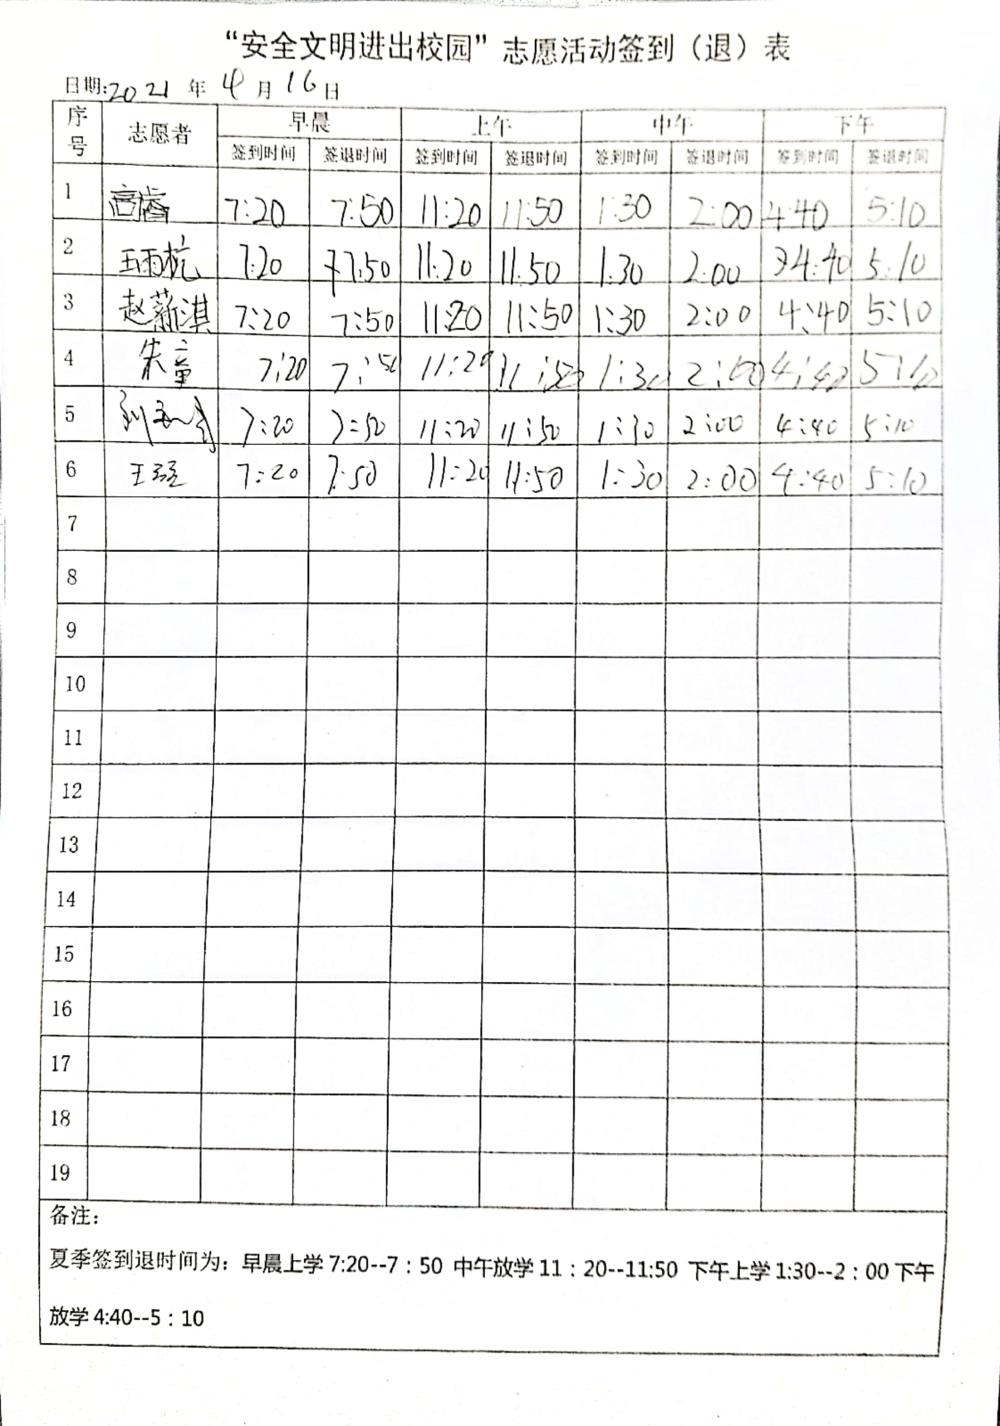 “安全文明进出校园”志愿活动签到（退）表
日期:2021 年 4 月 16 日
序号 志愿者 早晨 上午 中午 下午
签到时间 签退时间 签到时间 签退时间 签到时间 签退时间 签到时间 签退时间
1 7:20 7:50 11:20 11:50 1:30 2:00 4:40 5:10
2 王雨杭 7:20 7:50 11:20 11:50 1:30 2:00 4:40 5:10
3 赵薪淇 7:20 7:50 11:20 11:50 1:30 2:00 4:40 5:10
4 朱童 7:20 7:50 11:20 11:50 1:30 2:00 4:40 5:10
5 7:20 7:50 11:20 11:50 1:30 2:00 4:40 5:10
6 王 7:20 7:50 11:20 11:50 1:30 2:00 4:40 5:10
7
8
9
10
11
12
13
14
15
16
17
18
19
备注：
夏季签到退时间为：早晨上学 7:20--7：50 中午放学 11：20--11:50 下午上学 1:30--2：00 下午
放学 4:40--5：10